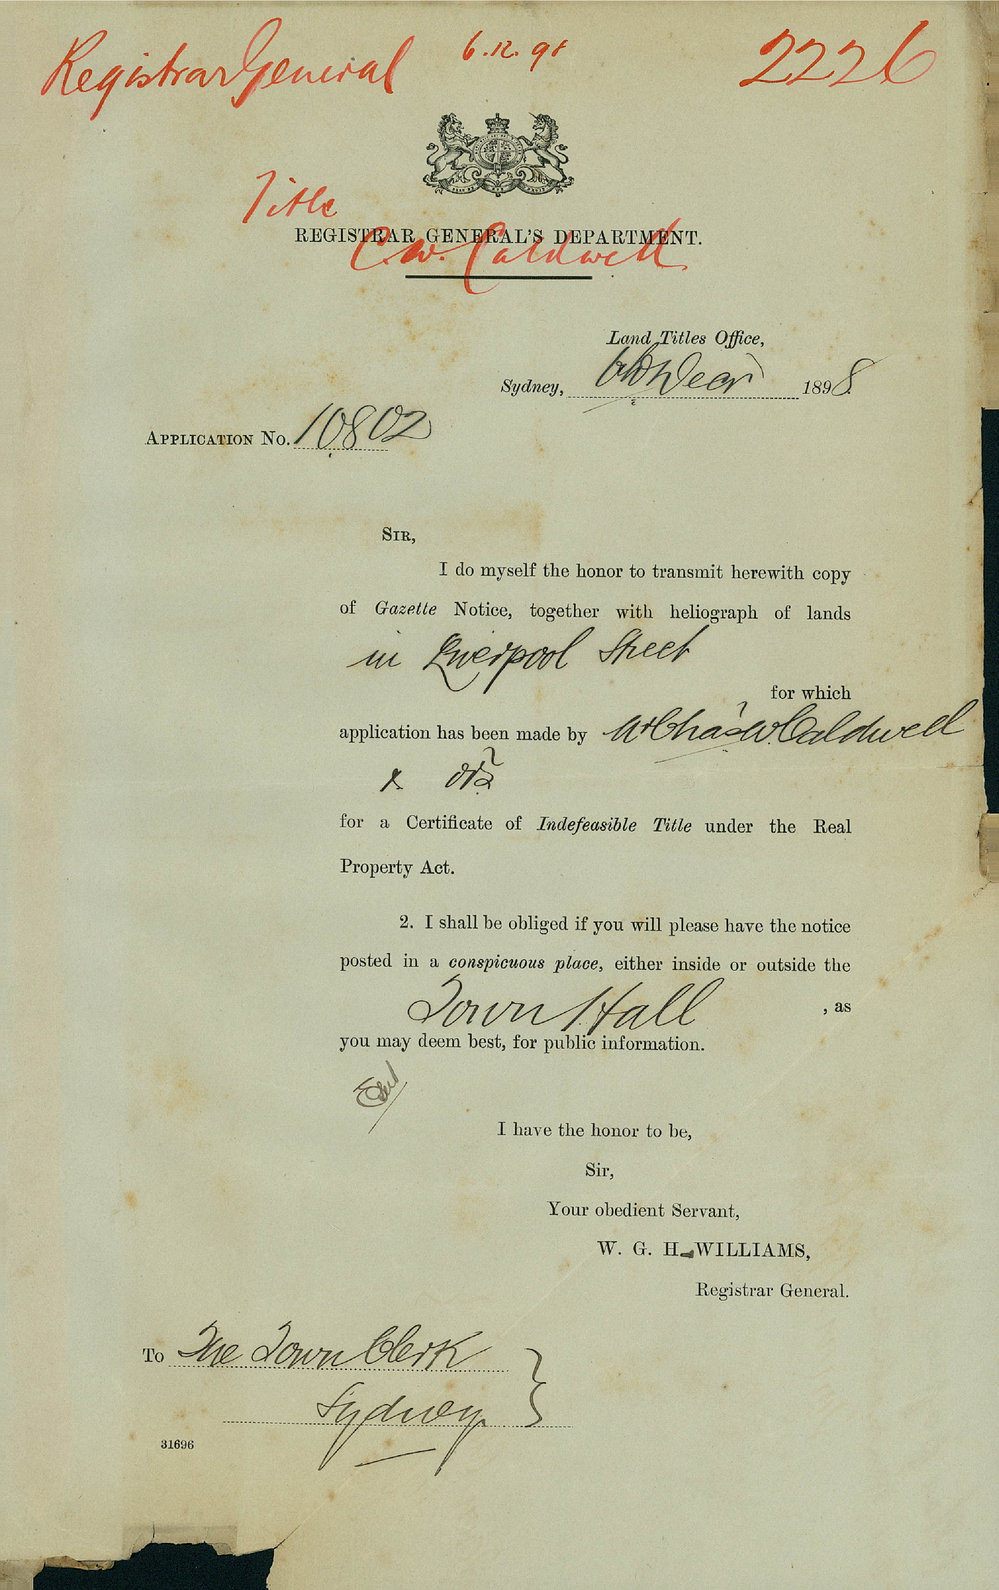 Registrar General 6.12.98 2226
Title
REGISTRAR GENERAL'S DEPARTMENT.
C. W. Caldwell
Land Titles Office,
Sydney, 6th Decr 1898.
APPLICATION No. 10802
SIR,
I do myself the honor to transmit herewith copy
of Gazette Notice, together with heliograph of lands
in Liverpool Street
for which
application has been made by Mr Chas W. Caldwell
& ors
for a Certificate of Indefeasible Title under the Real
Property Act.
2. I shall be obliged if you will please have the notice
posted in a conspicuous place, either inside or outside the
Town Hall , as
you may deem best, for public information.
I have the honor to be,
Sir,
Your obedient Servant,
W. G. H. WILLIAMS,
Registrar General.
To The Town Clerk
Sydney.
31696